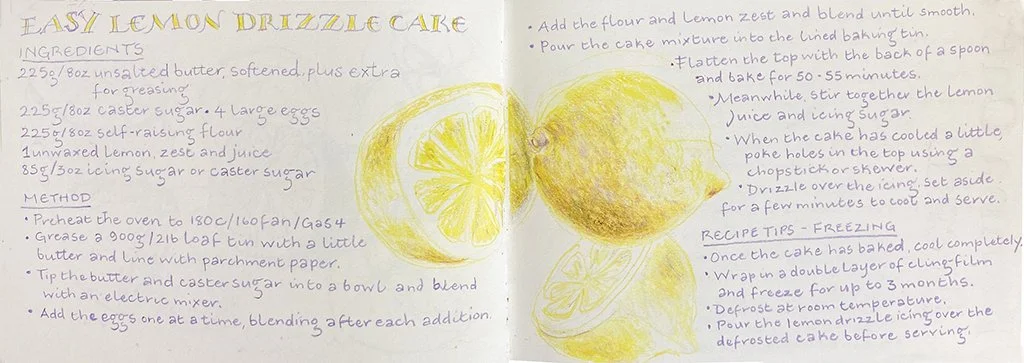 EASY LEMON DRIZZLE CAKE
INGREDIENTS
225g/8oz unsalted butter, softened, plus extra
for greasing
225g/8oz caster sugar • 4 large eggs
225g/8oz self-raising flour
1 unwaxed lemon, zest and juice
85g/3oz icing sugar or caster sugar
METHOD
• Preheat the oven to 180C/160fan/Gas4
• Grease a 900g/2lb loaf tin with a little
butter and line with parchment paper.
• Tip the butter and caster sugar into a bowl and blend
with an electric mixer.
• Add the eggs one at a time, blending after each addition.
• Add the flour and lemon zest and blend until smooth.
• Pour the cake mixture into the lined baking tin.
• Flatten the top with the back of a spoon
and bake for 50-55 minutes.
• Meanwhile, stir together the lemon
juice and icing sugar.
• When the cake has cooled a little,
poke holes in the top using a
chopstick or skewer.
• Drizzle over the icing, set aside
for a few minutes to cool and serve.
RECIPE TIPS - FREEZING
• Once the cake has baked, cool completely
• Wrap in a double layer of cling film
and freeze for up to 3 months.
• Defrost at room temperature.
• Pour the lemon drizzle icing over the
defrosted cake before serving.